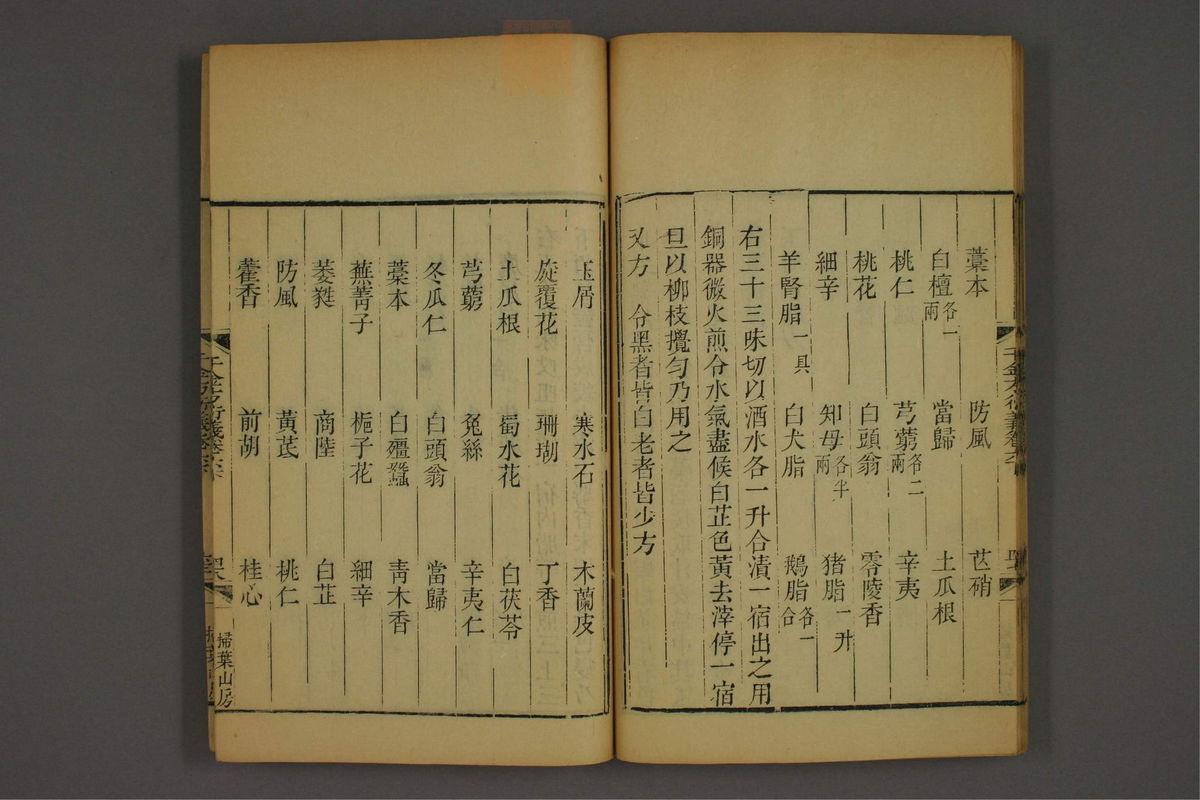 藁本 防風 芒硝
白檀各一兩 當歸 土瓜根
桃仁 芎藭各二兩 辛夷
桃花 白頭翁 零陵香
細辛 知母各半兩 猪脂一升
羊腎脂一具 白犬脂 鵝脂各一合
右三十三味切以酒水各一升合漬一宿出之用
銅器微火煎令水氣盡候白芷色黃去滓停一宿
旦以柳枝攪勻乃用之
又方 令黑者皆白老者皆少方
玉屑 寒水石 木蘭皮
旋覆花 珊瑚 丁香
土瓜根 蜀水花 白茯苓
芎藭 兔絲 辛夷仁
冬瓜仁 白頭翁 當歸
藁本 白殭蠶 青木香
蕪菁子 梔子花 細辛
萎蕤 商陸 白芷
防風 黃芪 桃仁
藿香 前胡 桂心
千金方衍義卷六
掃葉山房